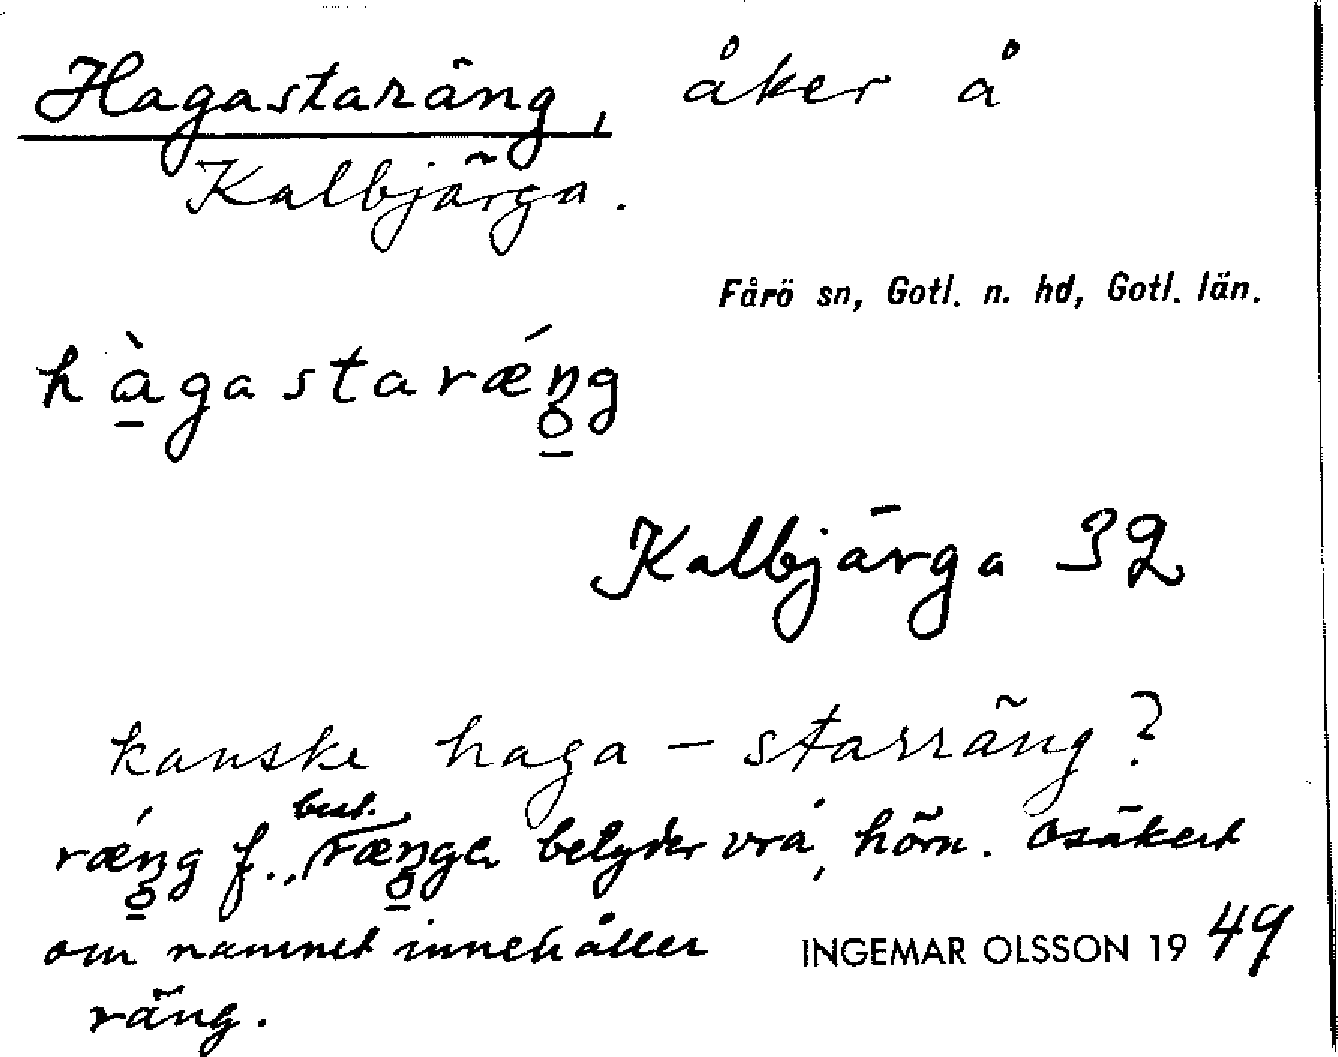 Hagastaräng, åker å
Kalbjärga.
Fårö sn, Gotl. n. hd, Gotl. län.
hàgastarǽŋg
Kalbjärga 32
kanske haga - starräng?
rǽŋg f., best. ræŋgę betyder vrå, hörn. Osäkert
om namnet innehåller
räng.
INGEMAR OLSSON 1949